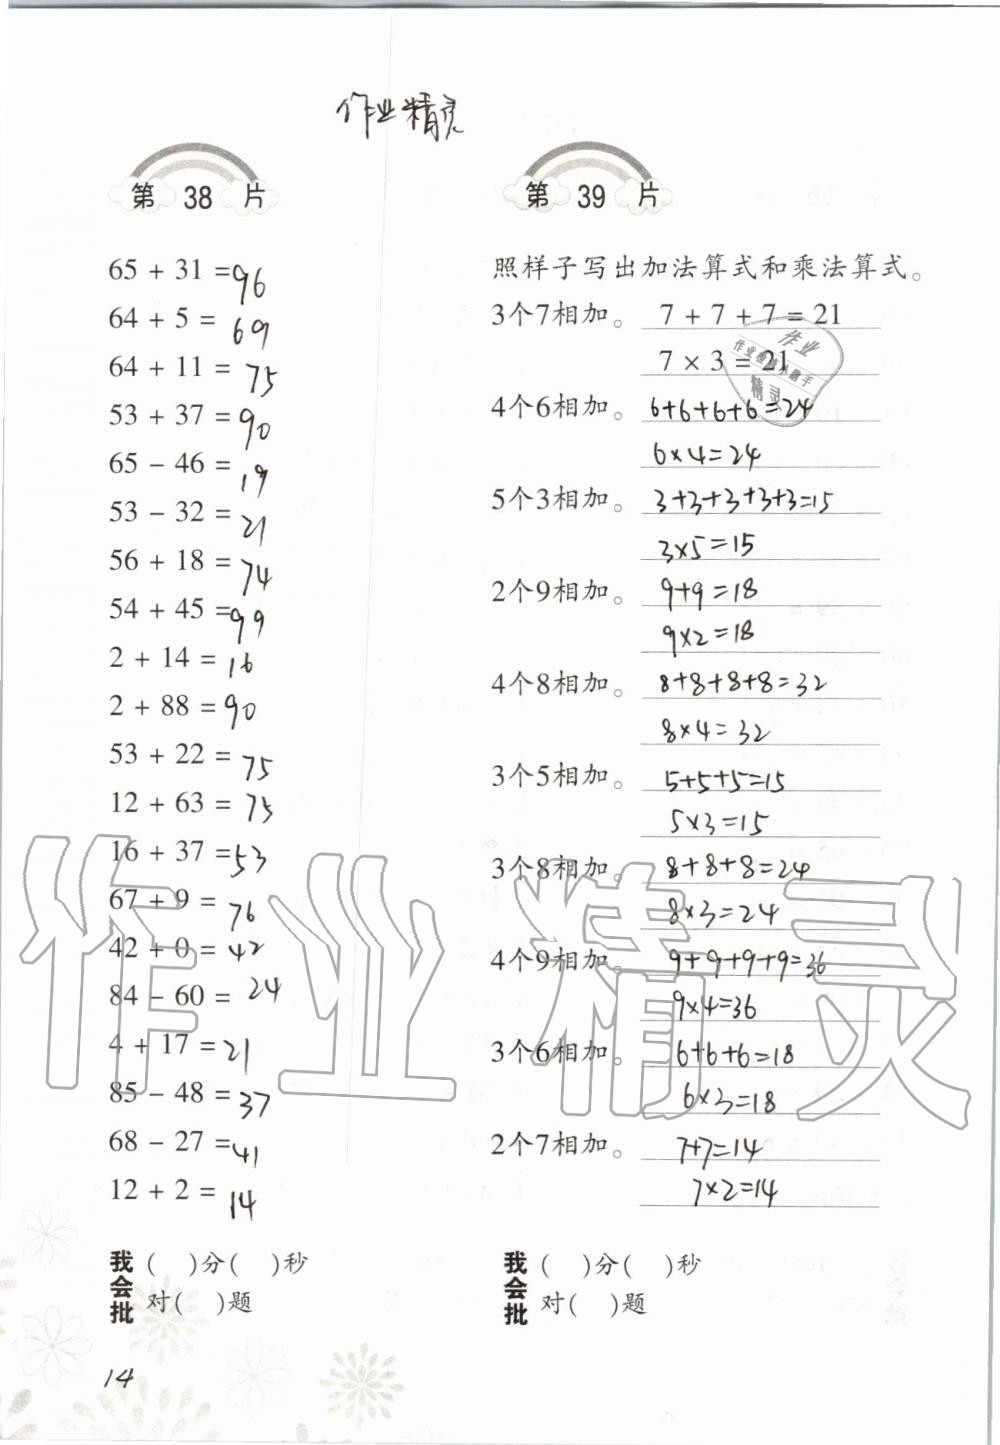 作业精灵
第 38 片
65 + 31 =96
64 + 5 = 69
64 + 11 = 75
53 + 37 = 90
65 - 46 = 19
53 - 32 = 21
56 + 18 = 74
54 + 45 =99
2 + 14 = 16
2 + 88 = 90
53 + 22 = 75
12 + 63 = 75
16 + 37 =53
67 + 9 = 76
42 + 0 = 42
84 - 60 = 24
4 + 17 = 21
85 - 48 = 37
68 - 27 =41
12 + 2 = 14
我会批
( )分( )秒
对( )题
第 39 片
照样子写出加法算式和乘法算式。
3个7相加。 7 + 7 + 7 = 21
7 × 3 = 21
4个6相加。 6+6+6+6=24
6×4=24
5个3相加。 3+3+3+3+3=15
3×5=15
2个9相加。 9+9=18
9×2=18
4个8相加。 8+8+8+8=32
8×4=32
3个5相加。 5+5+5=15
5×3=15
3个8相加。 8+8+8=24
8×3=24
4个9相加。 9+9+9+9=36
9×4=36
3个6相加。 6+6+6=18
6×3=18
2个7相加。 7+7=14
7×2=14
我会批
( )分( )秒
对( )题
作业
精灵
作业精灵
14